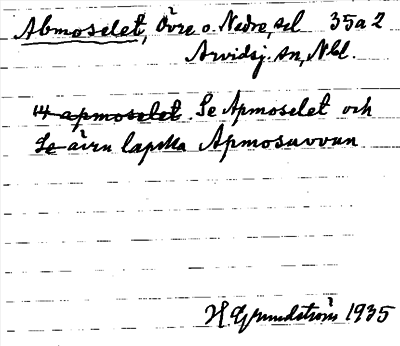 Abmoselet, Övre o. Nedre, sel 35a2
Arvidsj. sn, Nbl.
apmoselet. Se Apmoselet och
Se även lapska Apmosuvvun
H. Grundström 1935